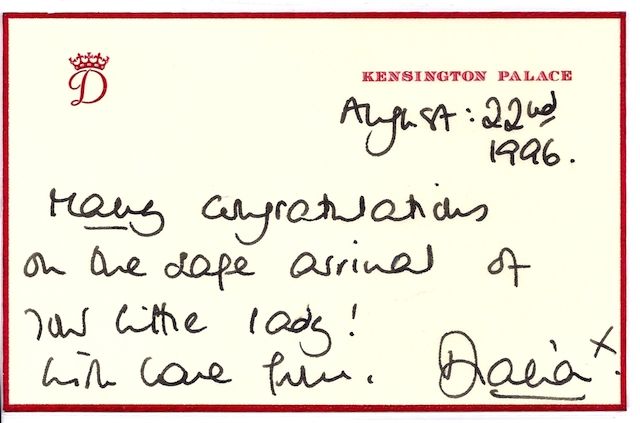 D
KENSINGTON PALACE
August: 22nd
1996.
Many congratulations
on the safe arrival of
your little lady!
with love from. Diana x.